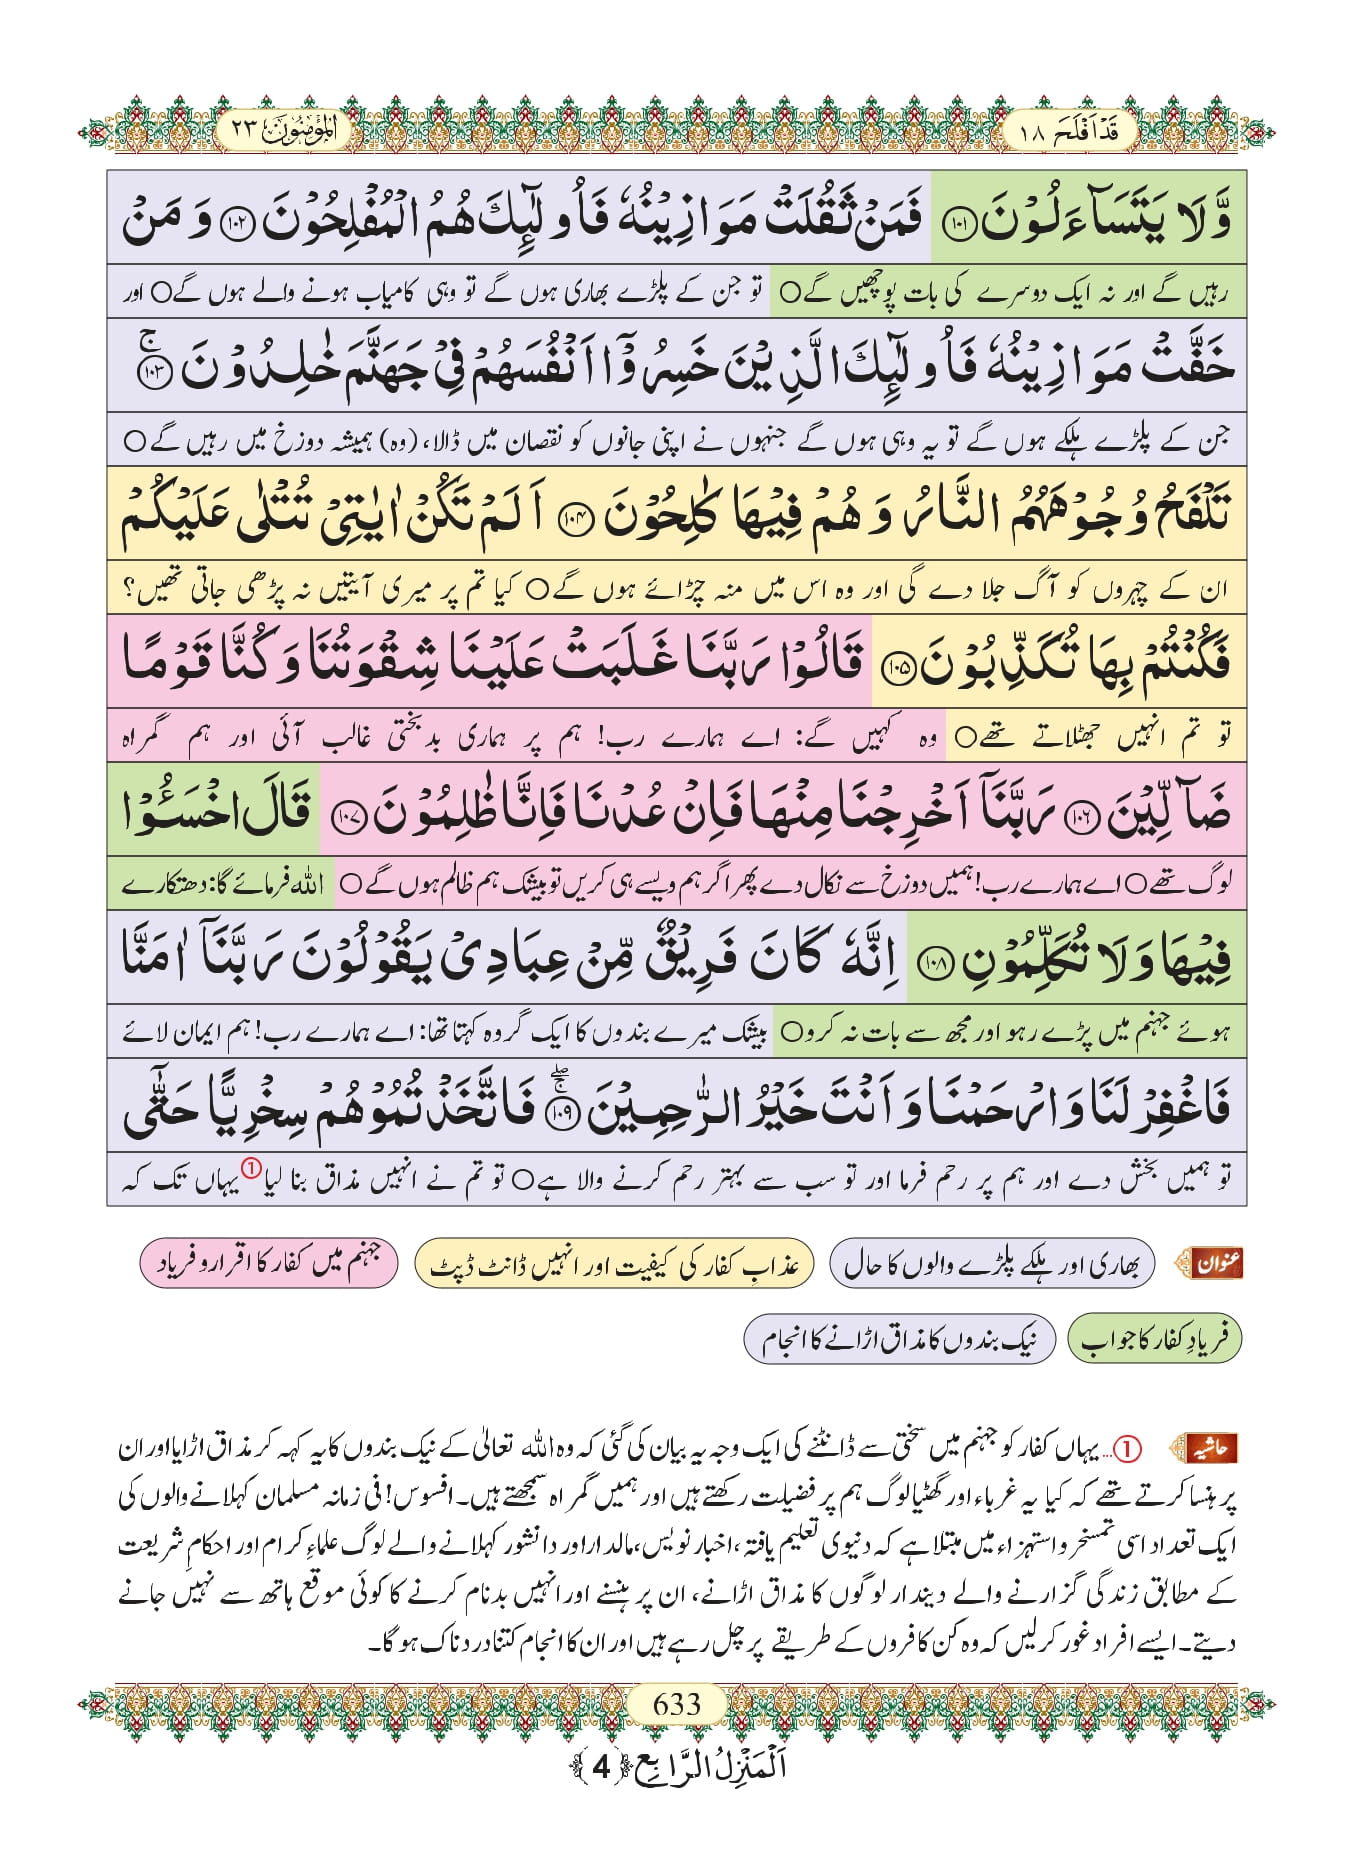 قَدْ اَفْلَحَ ١٨
الْمُؤْمِنُوْن ٢٣
وَّلَا یَتَسَآءَلُوْنَ ﴿۱۰۱﴾ فَمَنْ ثَقُلَتْ مَوَازِیْنُهٗ فَاُولٰٓىِٕكَ هُمُ الْمُفْلِحُوْنَ ﴿۱۰۲﴾ وَ مَنْ
رہیں گے اور نہ ایک دوسرے کی بات پوچھیں گے○ تو جن کے پلڑے بھاری ہوں گے تو وہی کامیاب ہونے والے ہوں گے○ اور
خَفَّتْ مَوَازِیْنُهٗ فَاُولٰٓىِٕكَ الَّذِیْنَ خَسِرُوْۤا اَنْفُسَهُمْ فِیْ جَهَنَّمَ خٰلِدُوْنَ ﴿۱۰۳﴾ۚ
جن کے پلڑے ہلکے ہوں گے تو یہ وہی ہوں گے جنہوں نے اپنی جانوں کو نقصان میں ڈالا، (وہ) ہمیشہ دوزخ میں رہیں گے○
تَلْفَحُ وُجُوْهَهُمُ النَّارُ وَ هُمْ فِیْهَا كٰلِحُوْنَ ﴿۱۰۴﴾ اَلَمْ تَكُنْ اٰیٰتِیْ تُتْلٰى عَلَیْكُمْ
ان کے چہروں کو آگ جلا دے گی اور وہ اس میں منہ چڑائے ہوں گے○ کیا تم پر میری آیتیں نہ پڑھی جاتی تھیں؟
فَكُنْتُمْ بِهَا تُكَذِّبُوْنَ ﴿۱۰۵﴾ قَالُوْا رَبَّنَا غَلَبَتْ عَلَیْنَا شِقْوَتُنَا وَ كُنَّا قَوْمًا
تو تم انہیں جھٹلاتے تھے○ وہ کہیں گے: اے ہمارے رب! ہم پر ہماری بدبختی غالب آئی اور ہم گمراہ
ضَآلِّیْنَ ﴿۱۰۶﴾ رَبَّنَاۤ اَخْرِجْنَا مِنْهَا فَاِنْ عُدْنَا فَاِنَّا ظٰلِمُوْنَ ﴿۱۰۷﴾ قَالَ اخْسَـُٔوْا
لوگ تھے○ اے ہمارے رب! ہمیں دوزخ سے نکال دے پھر اگر ہم ویسے ہی کریں تو بیشک ہم ظالم ہوں گے○ اللہ فرمائے گا: دھتکارے
فِیْهَا وَ لَا تُكَلِّمُوْنِ ﴿۱۰۸﴾ اِنَّهٗ كَانَ فَرِیْقٌ مِّنْ عِبَادِیْ یَقُوْلُوْنَ رَبَّنَاۤ اٰمَنَّا
ہوئے جہنم میں پڑے رہو اور مجھ سے بات نہ کرو○ بیشک میرے بندوں کا ایک گروہ کہتا تھا: اے ہمارے رب! ہم ایمان لائے
فَاغْفِرْ لَنَا وَ ارْحَمْنَا وَ اَنْتَ خَیْرُ الرّٰحِمِیْنَ ﴿۱۰۹﴾ۚۖ فَاتَّخَذْتُمُوْهُمْ سِخْرِیًّا حَتّٰۤى
تو ہمیں بخش دے اور ہم پر رحم فرما اور تو سب سے بہتر رحم کرنے والا ہے○ تو تم نے انہیں مذاق بنا لیا① یہاں تک کہ
عنوان بھاری اور ہلکے پلڑے والوں کا حال عذابِ کفار کی کیفیت اور انہیں ڈانٹ ڈپٹ جہنم میں کفار کا اقرار و فریاد
فریادِ کفار کا جواب نیک بندوں کا مذاق اڑانے کا انجام
حاشیہ ①... یہاں کفار کو جہنم میں سختی سے ڈانٹنے کی ایک وجہ یہ بیان کی گئی کہ وہ اللہ تعالیٰ کے نیک بندوں کا یہ کہہ کر مذاق اڑایا اور ان
پر ہنسا کرتے تھے کہ کیا یہ غرباء اور گھٹیا لوگ ہم پر فضیلت رکھتے ہیں اور ہمیں گمراہ سمجھتے ہیں۔ افسوس! فی زمانہ مسلمان کہلانے والوں کی
ایک تعداد اسی تمسخر و استہزاء میں مبتلا ہے کہ دنیوی تعلیم یافتہ، اخبار نویس، مالدار اور دانشور کہلانے والے لوگ علماءِ کرام اور احکامِ شریعت
کے مطابق زندگی گزارنے والے دیندار لوگوں کا مذاق اڑانے، ان پر ہنسنے اور انہیں بدنام کرنے کا کوئی موقع ہاتھ سے نہیں جانے
دیتے۔ ایسے افراد غور کرلیں کہ وہ کن کافروں کے طریقے پر چل رہے ہیں اور ان کا انجام کتنا دردناک ہو گا۔
633
اَلْمَنْزِلُ الرَّابِع ﴿4﴾